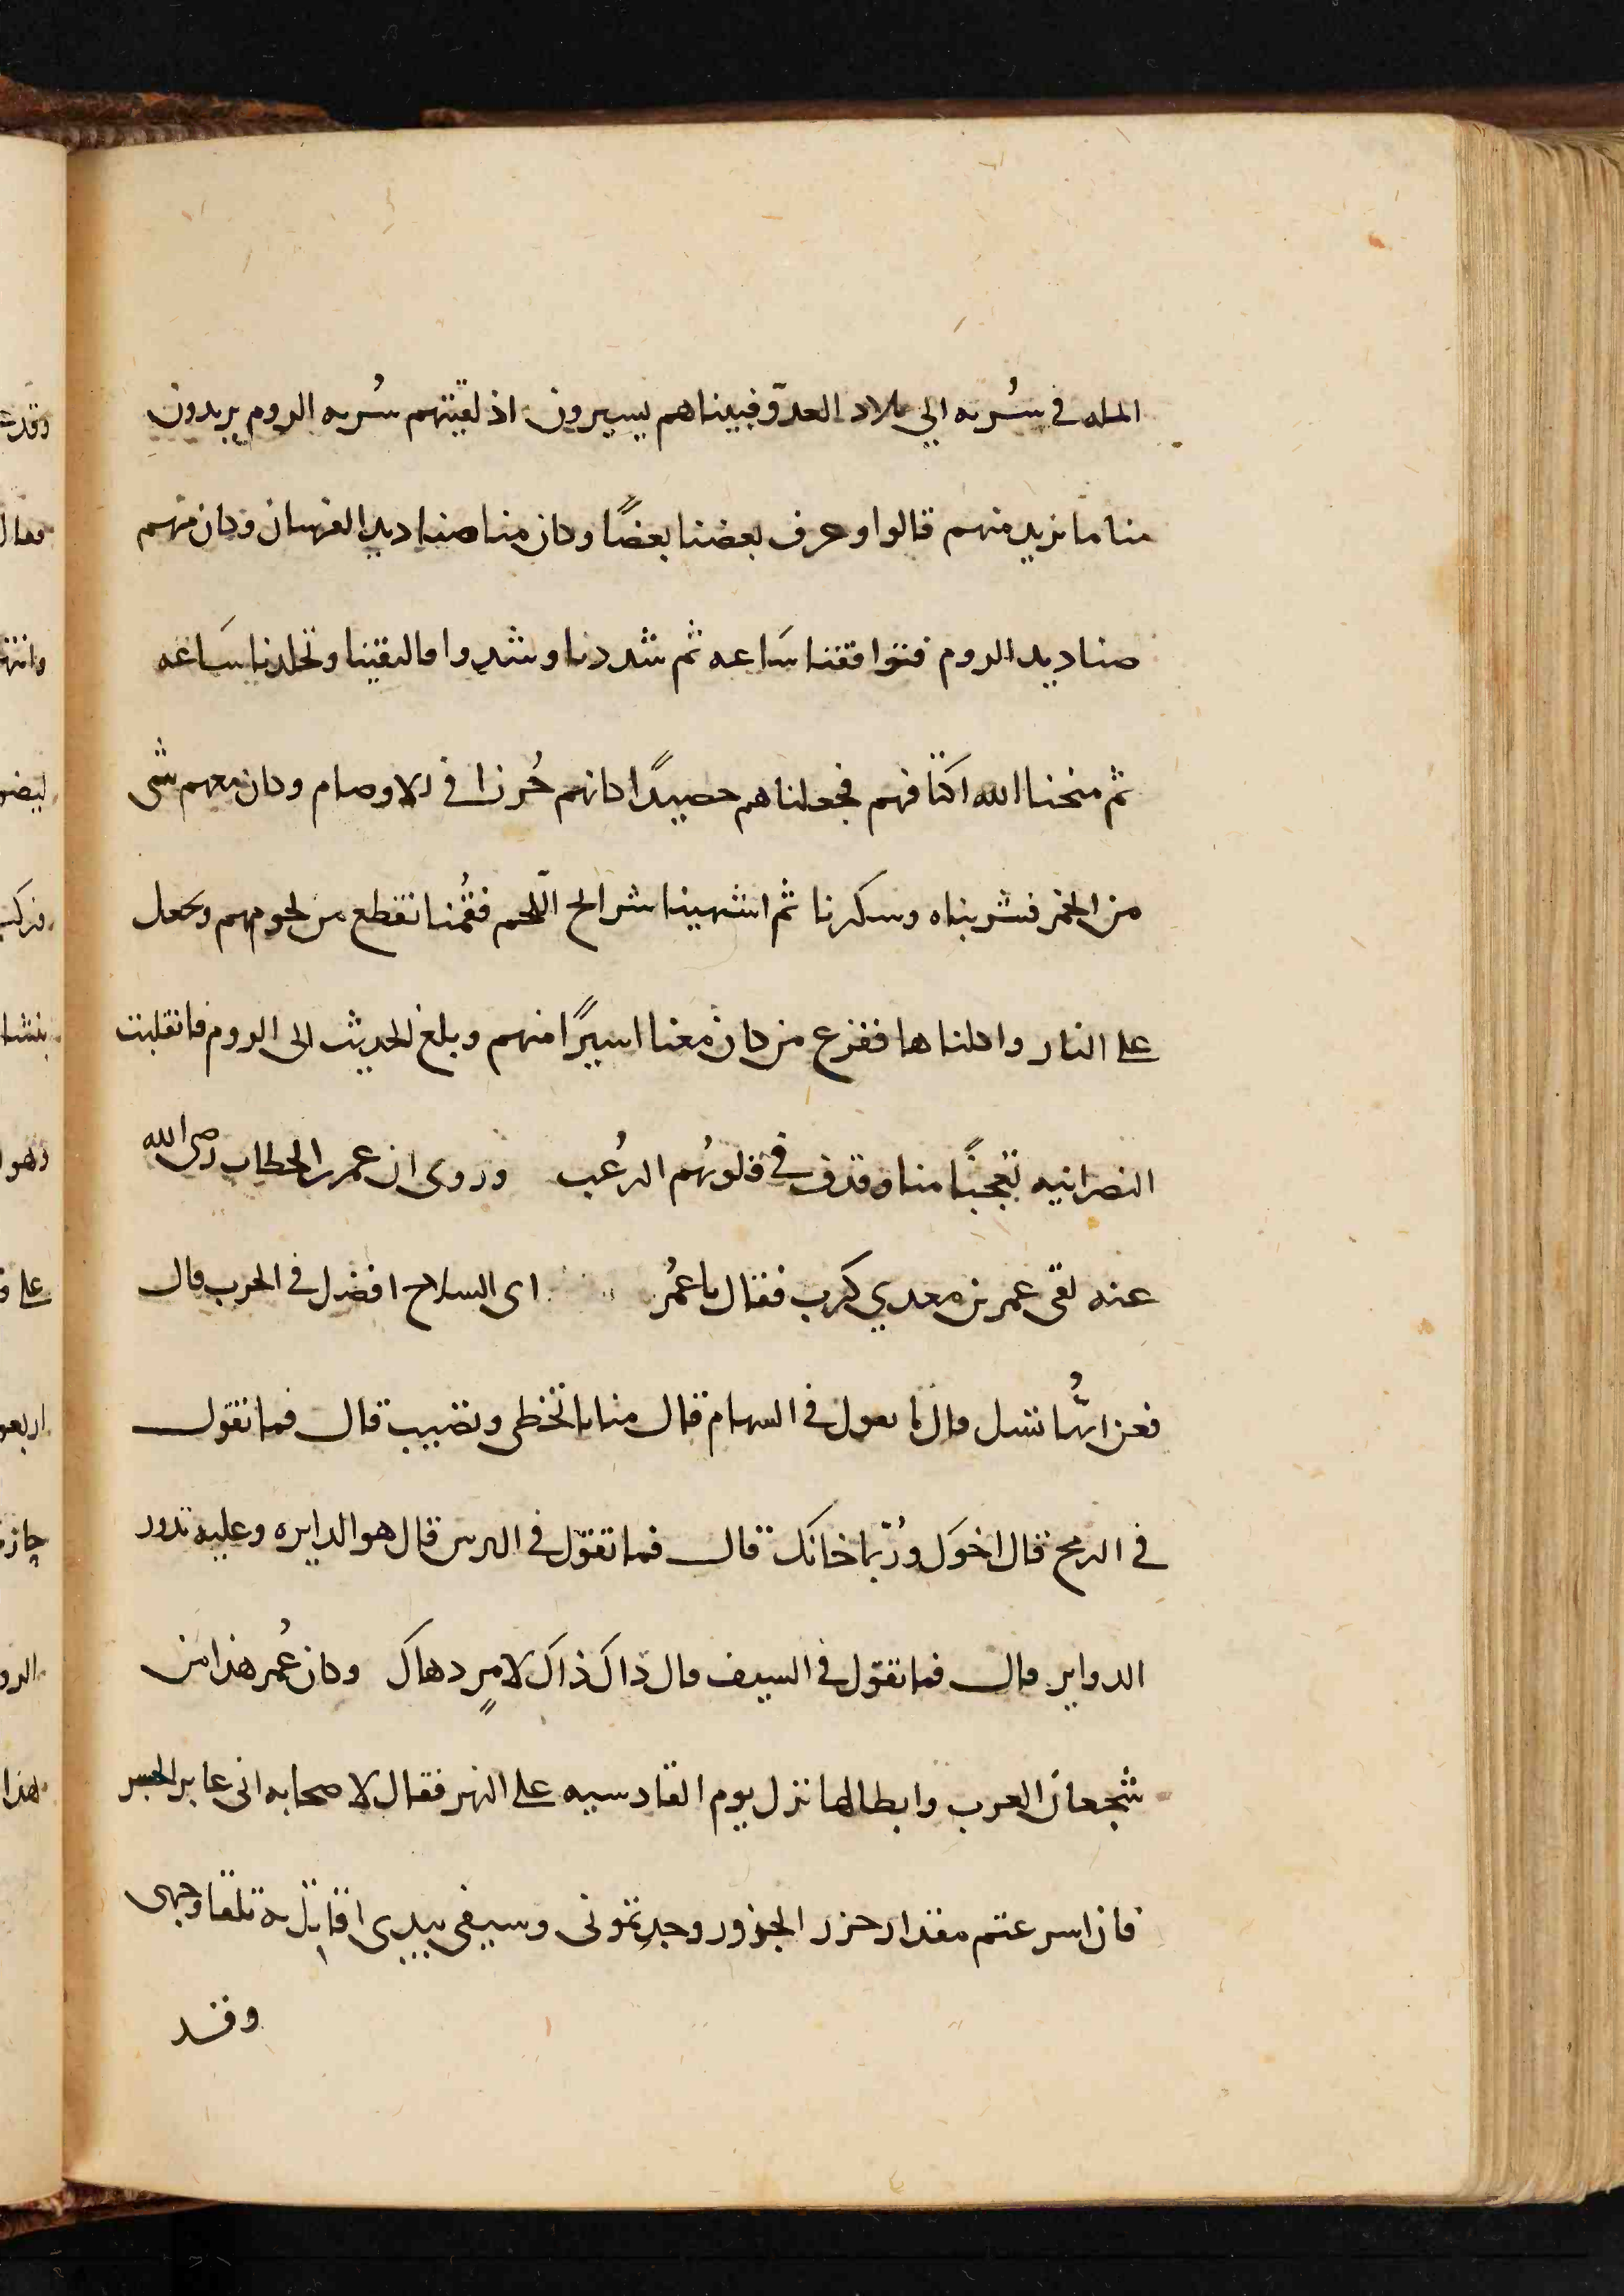 المله في سُريه الي بلاد العدوّ فبيناهم يسيرون اذ لقيتهم سُريه الروم يريدون
منا ما نريد منهم قالوا وعرف بعضنا بعضًا وكان منا صناديد الفرسان وكان منهم
صناديد الروم فتواقفنا سَاعه ثم شددنا وشدوا فالتقينا وتجلدنا سَاعه
ثم منحنا الله اكتافهم فجعلناهم حصيدًا كانهم حُرزا في الاوصام وكان معهم شى
من الخمر فشربناه وسكرنا ثم اشتهينا شرايح اللّحم فقُمنا نقطع من لحومهم ونجعل
على النار واكلناها ففزع من كان معنا اسيرًا منهم وبلغ الحديث الى الروم فانقلبت
النصرانيه تعجبًا منا وقذف في قلوبُهم الرُعب وروى ان عمر بن الخطاب رضى الله
عنه لقى عمر بن معدي كرب فقال يا عمُر اى السلاح افضل في الحرب قال
فعن ايُّها تسل قال ما تقول في السهام قال منايا تخطى وتصيب قال فما تقول
في الرمح قال اخوَك ورُبّما خانَك قال فما تقول في الترس قال هو الدايره وعليه تدور
الدواير قال فما تقول في السيف قال ذاك ذاك لامٍر دهاكَ وكان عُمر هذا من
شجعان العرب وابطالها نزل يوم القادسيه على النهر فقال لاصحابه انى عابر الجسر
فان اسرعتم مقدار جزر الجزور وجدتمونى وسيفى بيدى اقاتل به تلقا وجهى
وقد